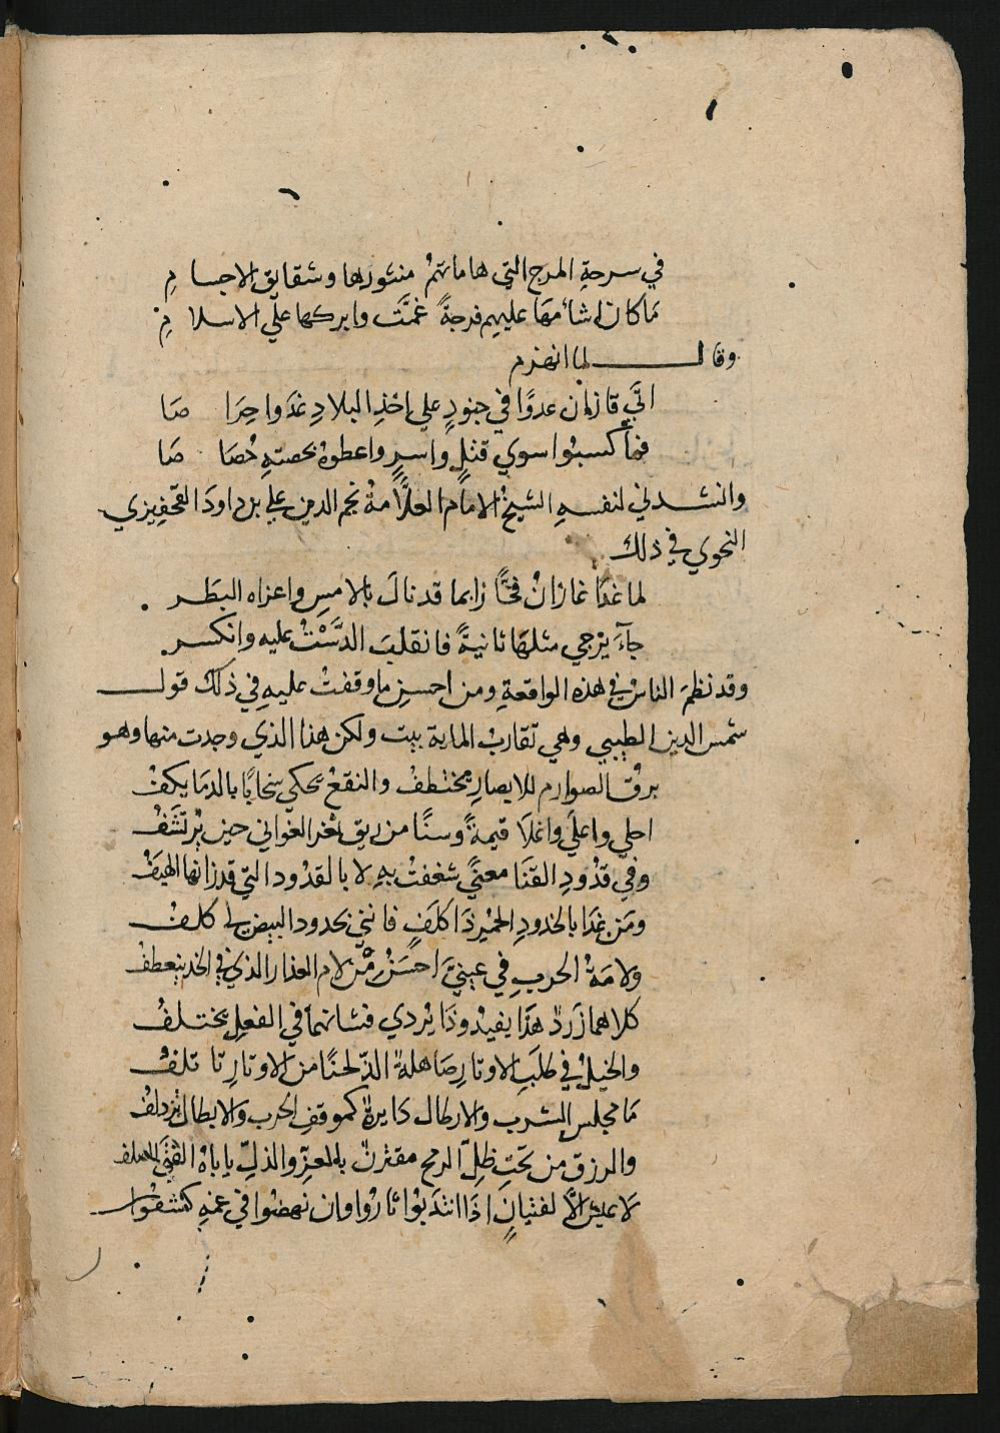 في سرحةِ المرج التي هاماتهمُ منثورها وشقايق الاجسا مِ
مَا كان اشأمهَا عليهم فرجةً عمَّت وابركها علي الاسلا مِ
وقال لما انهزم
اتي قازان عدوًا في جنودٍ علي اخذِ البلادِ غدَوا حِرَا صَا
فما كسبُوا سوي قتلٍ واسرٍ واعطوهُ بحصتهِ حُصَا صَا
وانشدني لنفسهِ الشيخُ الامام العلَّامةُ نجم الدين علي بن داودَ القحفِيزي
النحوي في ذلك
لما غدَا غازانُ فخًّا زا بما قد نالَ بالامسِ واعزاه البطَر
جآءَ يرجي مثلهَا ثانيةً فانقلبَ الدَّسْتُ عليه وانكسر
وقد نظمَ الناسُ في هذه الواقعةِ ومن احسنِ ما وقفتُ عليهِ في ذلك قول
شمس الدين الطيبي وهي تقاربُ الماية بيت ولكن هذا الذي وجدت منها وهو
برقُ الصوارم للابصارِ يختطفُ والنقعُ يحكي سحَابًا بالدمَا يكفُ
احلي واعلَي واغلَا قيمةً وسنًا من ريق ثغر الغواني حين يُرتَشَفُ
وفي قدُودِ القنَا معنًي شغفتُ بهِ لا بالقدُود التي قد زانها الهيَفُ
ومَن غدَا بالخدودِ الحُمْرِ ذَا كلَفٍ فانني بخدود البيض لي كلفُ
ولامَةُ الحربِ في عينيَّ احسَنُ مِنْ لام العذار الذي في الخد ينعطفُ
كلاهما زَردٌ هذَا يفيدُ وذَا يُردي فشانهما في الفعلِ يختلفُ
والخيلُ في طلَبِ الاوتارِ صَاهلةٌ الذّ لحنًا من الاوتارِ تا تلفُ
مَا مجلس الشرب والارطال دايرةٌ كموقفِ الحرب والابطال تزدلفُ
والرزق من تحتِ ظلِّ الرمح مقترنٌ بالعزِّ والذلِّ ياباهُ الفتَي الصلف
لا عيش الّا لفتيانٍ اذَا انتدَبُوا ثاروا وان نهضُوا في غمةٍ كشفُوا